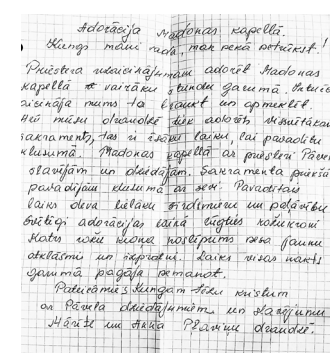 Adorācija Madonas kapellā.
Kungs mani radā, man nekā netrūkst!
Priestera uzaicinājumam adorēt Madonas
kapellā vairāku stundu garumā.
aicināja mums to braukt un apmeklēt.
mūsu draudzē tiek adorēts Vissvētākais
sakraments, tas ir īsāku laiku, lai pavadītu
klusumā. Madonas kapellā ar priesteri
slavējām un dziedājām. Sakramenta priekšā
pavadījām klusumā ar sevi. Pavadītais
laiks deva lielāku sirdsmieru un paļāvību
adorācijas laikā lūgties rožukroni
Katrs noslēpums nesa jaunu
atklāsmi un izpratni. Laiks visas nakts
garumā pagāja nemanot.
Pateicamies Kungam Jēzu Kristum
ar Pāvila dziedājumiem un slavējumu
Mārīte un Anna Pļaviņu draudzē.